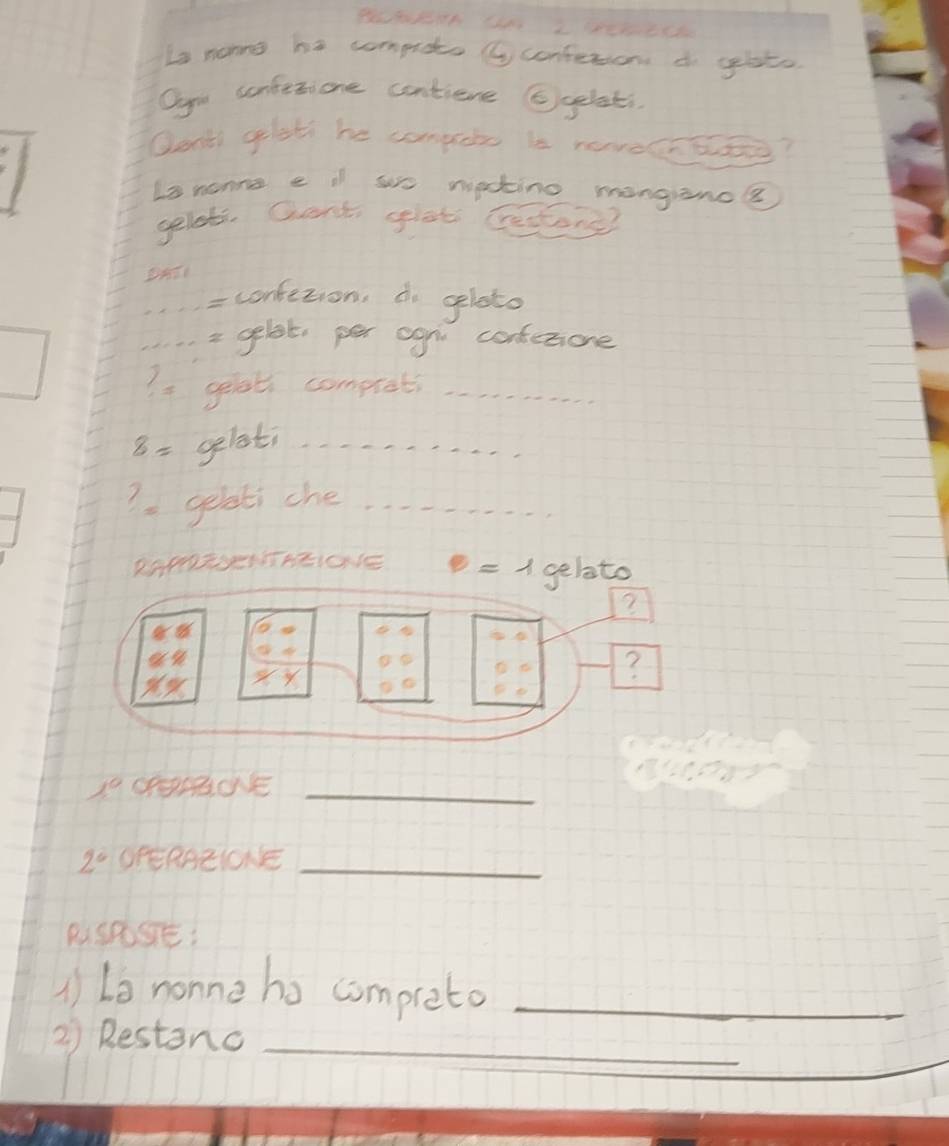 La nonna ha comprato 4 confezioni di gelato.
Ogni confezione contiene 6 gelati.
Quanti gelati ha comprato la nonna in tutto?
La nonna e il suo nipotino mangiano 8
gelati. Quanti gelati restano?
DATI
.... = confezioni di gelato
..... = gelati per ogni confezione
? = gelati comprati ..........
8 = gelati ..........
? = gelati che ..........
RAPPRESENTAZIONE = 1 gelato
?
?
1° OPERAZIONE ______
2° OPERAZIONE ______
RISPOSTE:
1) La nonna ha comprato ______
2) Restano ______